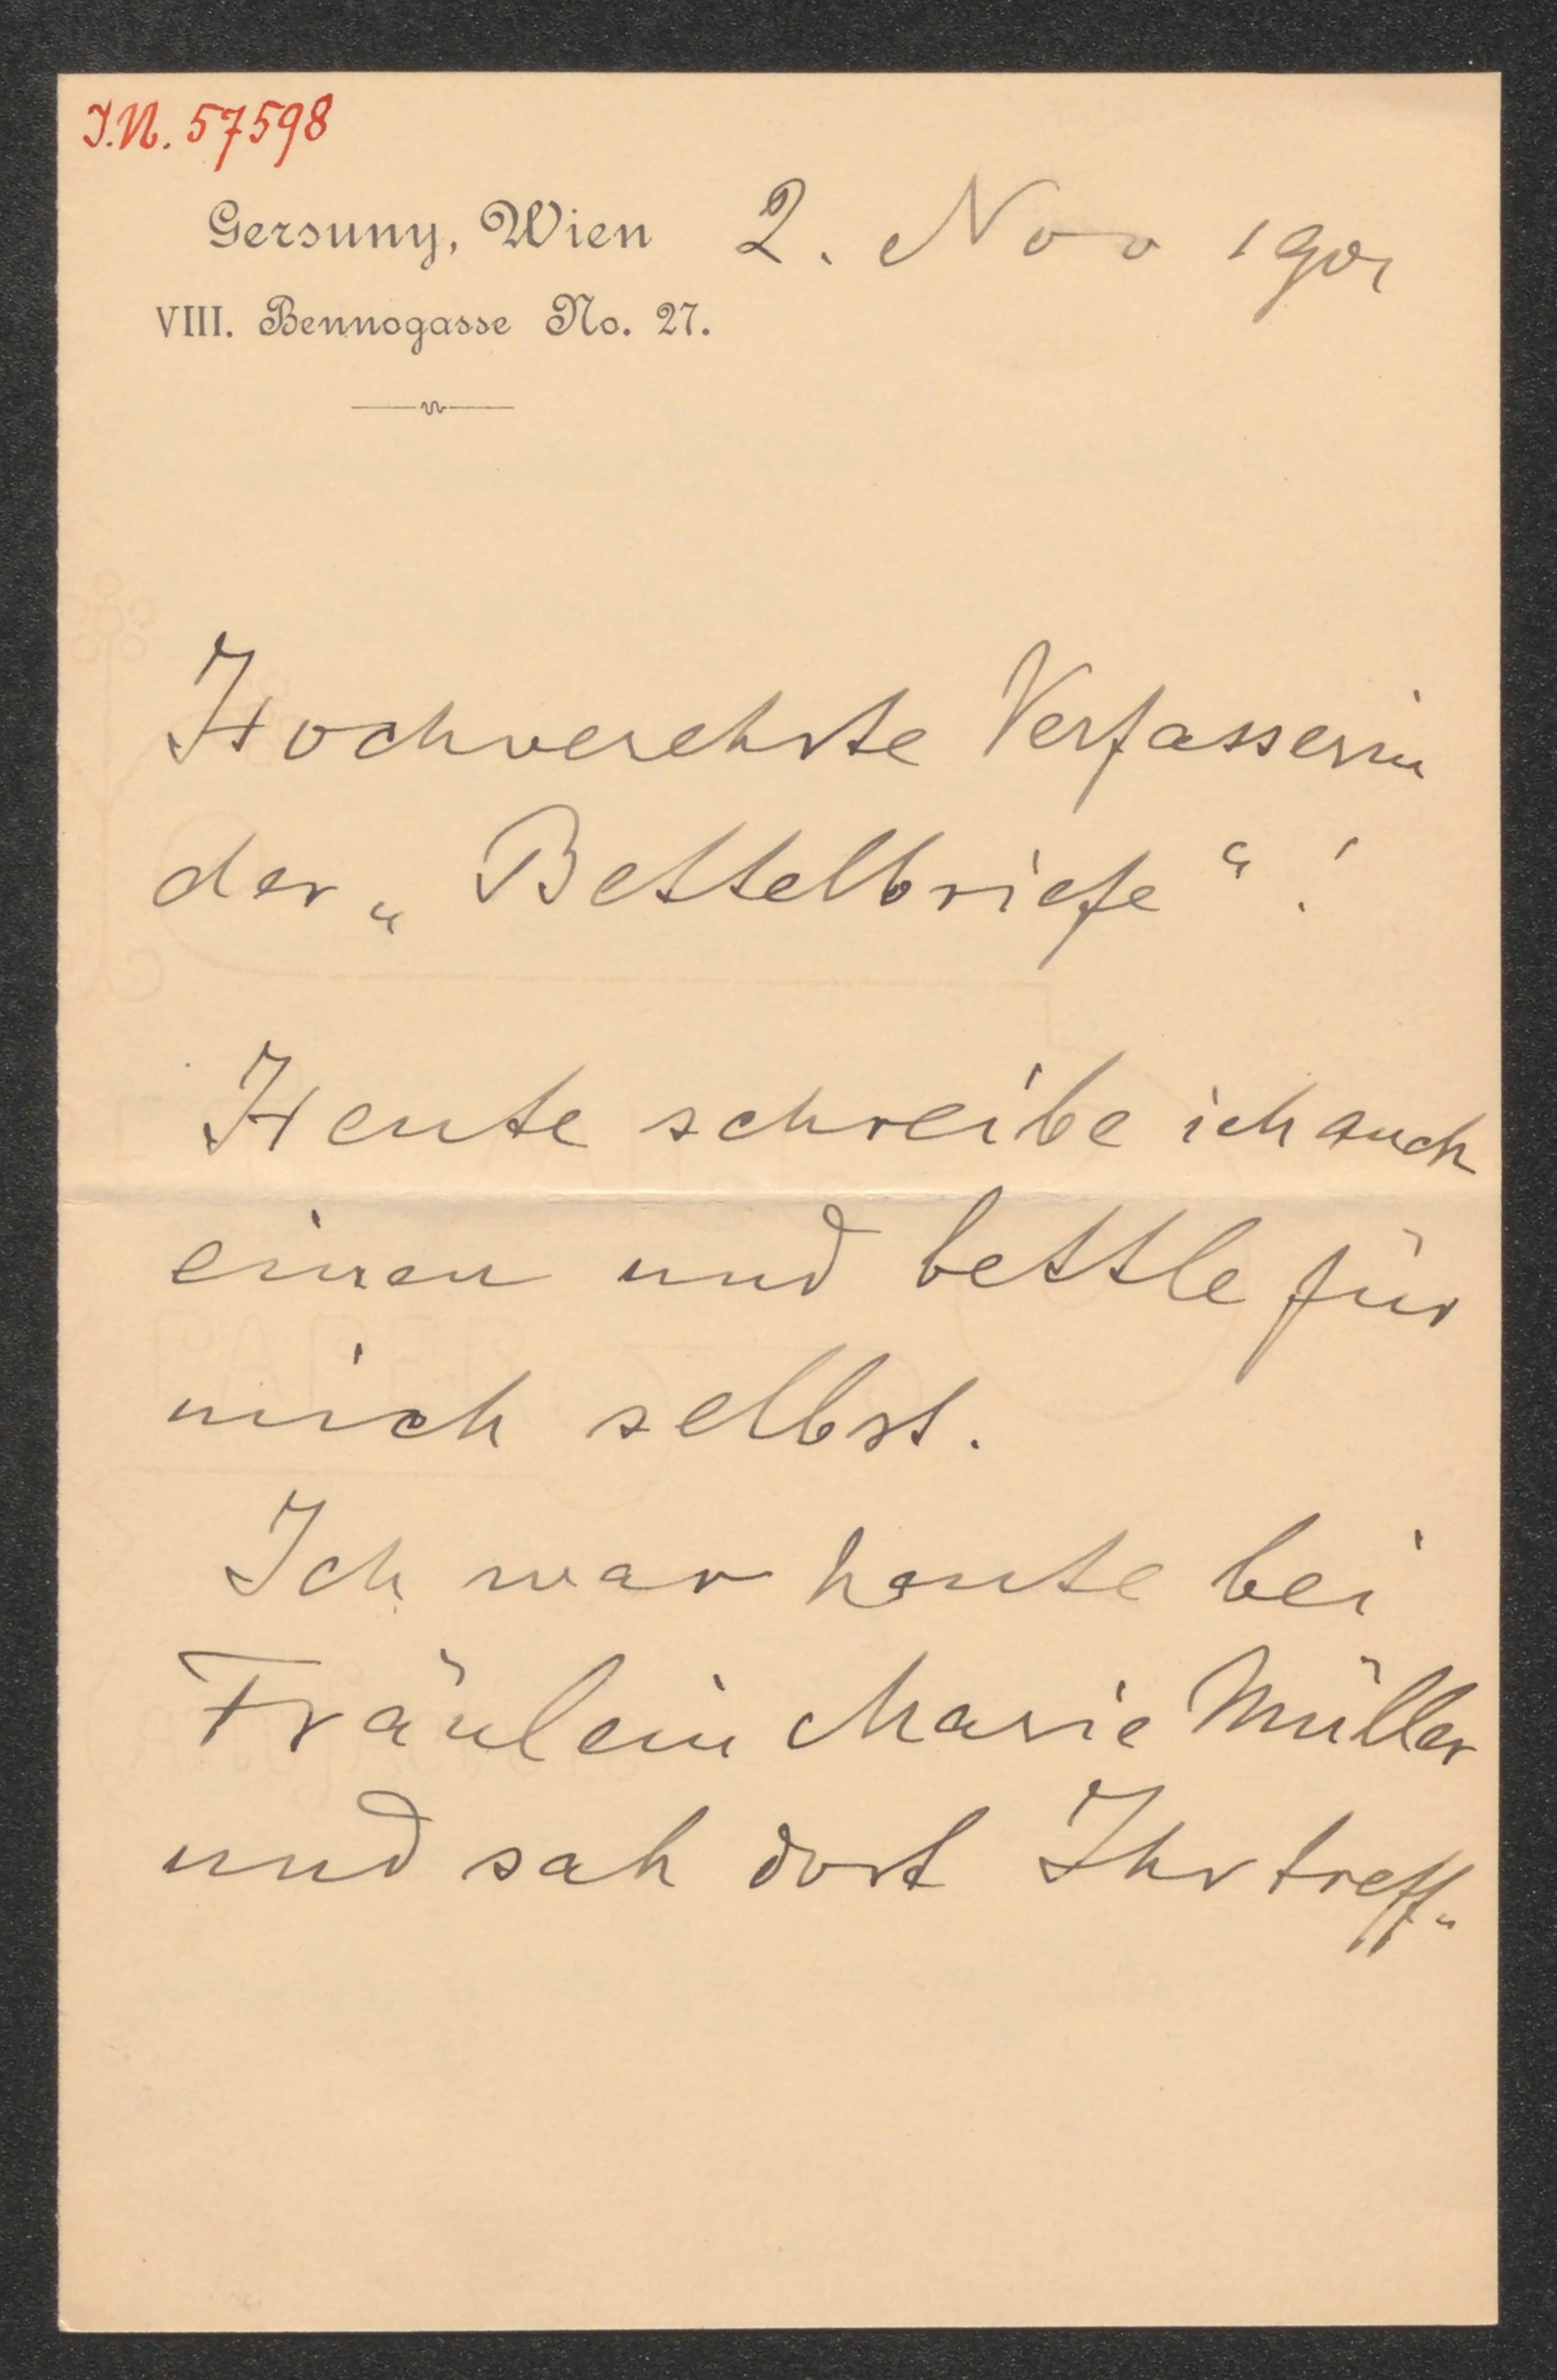 I.N. 57598
Gersuny, Wien 2. Nov 1901
VIII. Bennogasse No. 27.
Hochverehrte Verfasserin
der „Bettelbriefe“!
Heute schreibe ich auch
einen und bettle für
mich selbst.
Ich war heute bei
Fräulein Marie Müller
und sah dort Ihr treff-